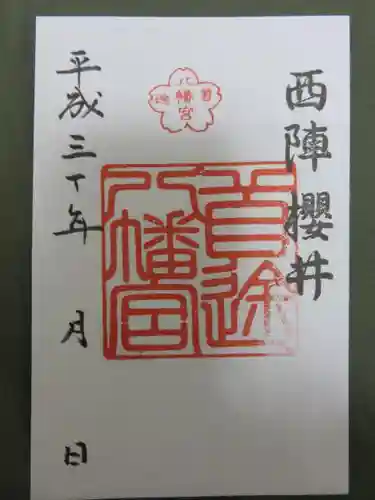 西陣櫻井
首途
八幡宮
首途
八幡宮
平成三十年 月 日